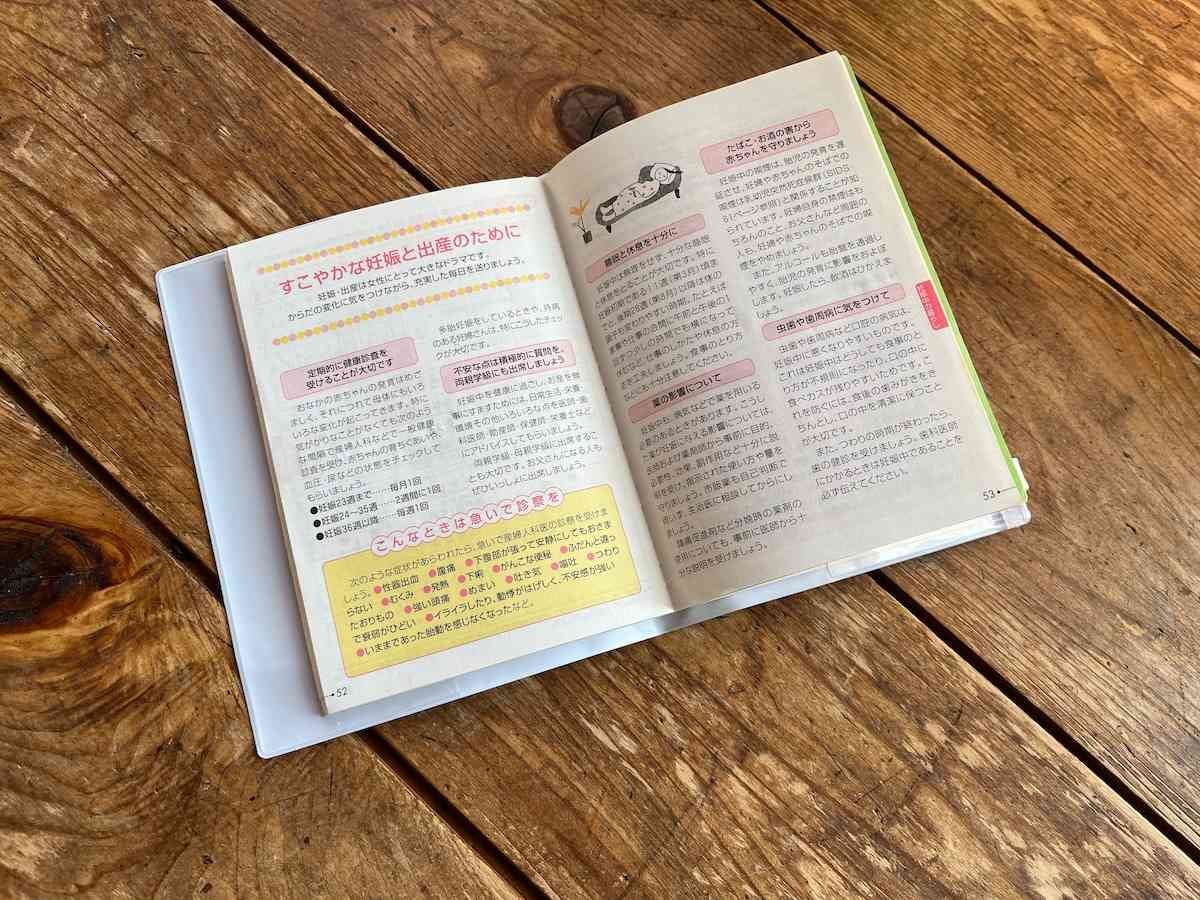 すこやかな妊娠と出産のために
妊娠・出産は女性にとって大きなドラマです。
からだの変化に気をつけながら、充実した毎日を送りましょう。
定期的に健康診査を
受けることが大切です
おなかの赤ちゃんの発育はめざ
ましく、それにつれて母体にもいろ
いろな変化が起こってきます。特に
気がかりなことがなくても次のよう
な間隔で産婦人科などで一般健康
診査を受け、赤ちゃんの育ちぐあいや
血圧・尿などの状態をチェックして
もらいましょう。
●妊娠23週まで……毎月1回
●妊娠24〜35週……2週間に1回
●妊娠36週以降……毎週1回
多胎妊娠をしているときや、持病
のある妊婦さんは、特にこうしたチェッ
クが大切です。
不安な点は積極的に質問を。
両親学級にも出席しましょう
妊娠中を健康に過ごし、お産を無
事にすますためには、日常生活・栄養・
環境その他いろいろな点を医師・歯
科医師・助産師・保健師・栄養士など
にアドバイスしてもらいましょう。
両親学級・母親学級に出席するこ
とも大切です。お父さんになる人も
ぜひいっしょに出席しましょう。
こんなときは急いで診察を
次のような症状があらわれたら、急いで産婦人科医の診察を受けま
しょう。●性器出血 ●腹痛 ●下腹部が張って安静にしてもおさま
らない ●むくみ ●発熱 ●下痢 ●がんこな便秘 ●ふだんと違っ
たおりもの ●強い頭痛 ●めまい ●吐き気 ●嘔吐 ●つわり
で衰弱がひどい ●イライラしたり、動悸がはげしく、不安感が強い
●いままであった胎動を感じなくなったなど。
52
睡眠と休息を十分に
妊娠中は無理をせず、十分な睡眠
と休息をとることが大切です。特に
妊娠初期である11週(第3月)頃ま
でと、後期28週(第8月)以降は体の
調子も変わりやすい時期。たとえば
家事や仕事の合間に午前と午後の1
回ずつ、5分間でも横になって
休むなど、仕事のしかたや休息の方
法を工夫しましょう。食事のとり方
などにも十分注意してください。
薬の影響について
妊娠中も、病気などで薬を用いる
必要のあるときがあります。こうし
た薬が妊娠に与える影響については、
主治医および薬剤師から、事前に目的、
必要性、効果、副作用など十分に説
明を受け、指示された使い方や量を
守りましょう。市販薬も自己判断で
使いず、主治医に相談してからにし
ましょう。
陣痛促進剤など分娩時の薬剤の
使用についても、事前に医師から十
分な説明を受けましょう。
たばこ・お酒の害から
赤ちゃんを守りましょう
妊娠中の喫煙は、胎児の発育を遅
延させ、妊婦や赤ちゃんのそばでの
喫煙は乳幼児突然死症候群(SIDS
61ページ参照)と関係することが知
られています。妊婦自身の禁煙はも
ちろんのこと、お父さんなど周囲の
人も、妊婦や赤ちゃんのそばでの喫
煙をやめましょう。
また、アルコールも胎盤を通過し
やすく、胎児の発育に影響をおよぼ
します。妊娠したら、飲酒はひかえま
しょう。
虫歯や歯周病に気をつけて
虫歯や歯周病など口腔の病気は、
妊娠中に悪くなりやすいものです。
これは妊娠中はどうしても食事のと
り方が不規則になったり、口の中に
食べカスが残りやすいためです。こ
れを防ぐには、食後の歯みがきをき
ちんとし、口の中を清潔に保つこと
が大切です。
また、つわりの時期が終わったら、
歯の健診を受けましょう。歯科医師
にかかるときは妊娠中であることを
必ず伝えてください。
53